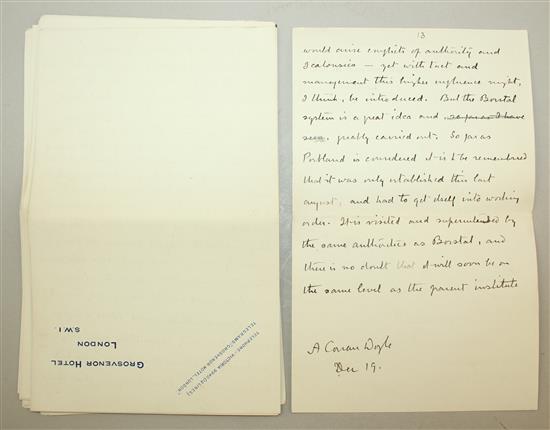 GROSVENOR HOTEL
LONDON
S.W.1.
TELEPHONE: VICTORIA
TELEGRAMS: GROSVENOR HOTEL, LONDON
13
would arise conflicts of authority and
Jealousies — yet with tact and
management this higher influence might,
I think, be introduced. But the Borstal
system is a great idea and so far as I have
seen greatly carried out. So far as
Portland is considered it is to be remembered
that it was only established this last
august, and had to get itself into working
order. It is visited and superintended by
the same authorities as Borstal, and
there is no doubt that it will soon be on
the same level as the parent institute
A Conan Doyle
Dec 19.